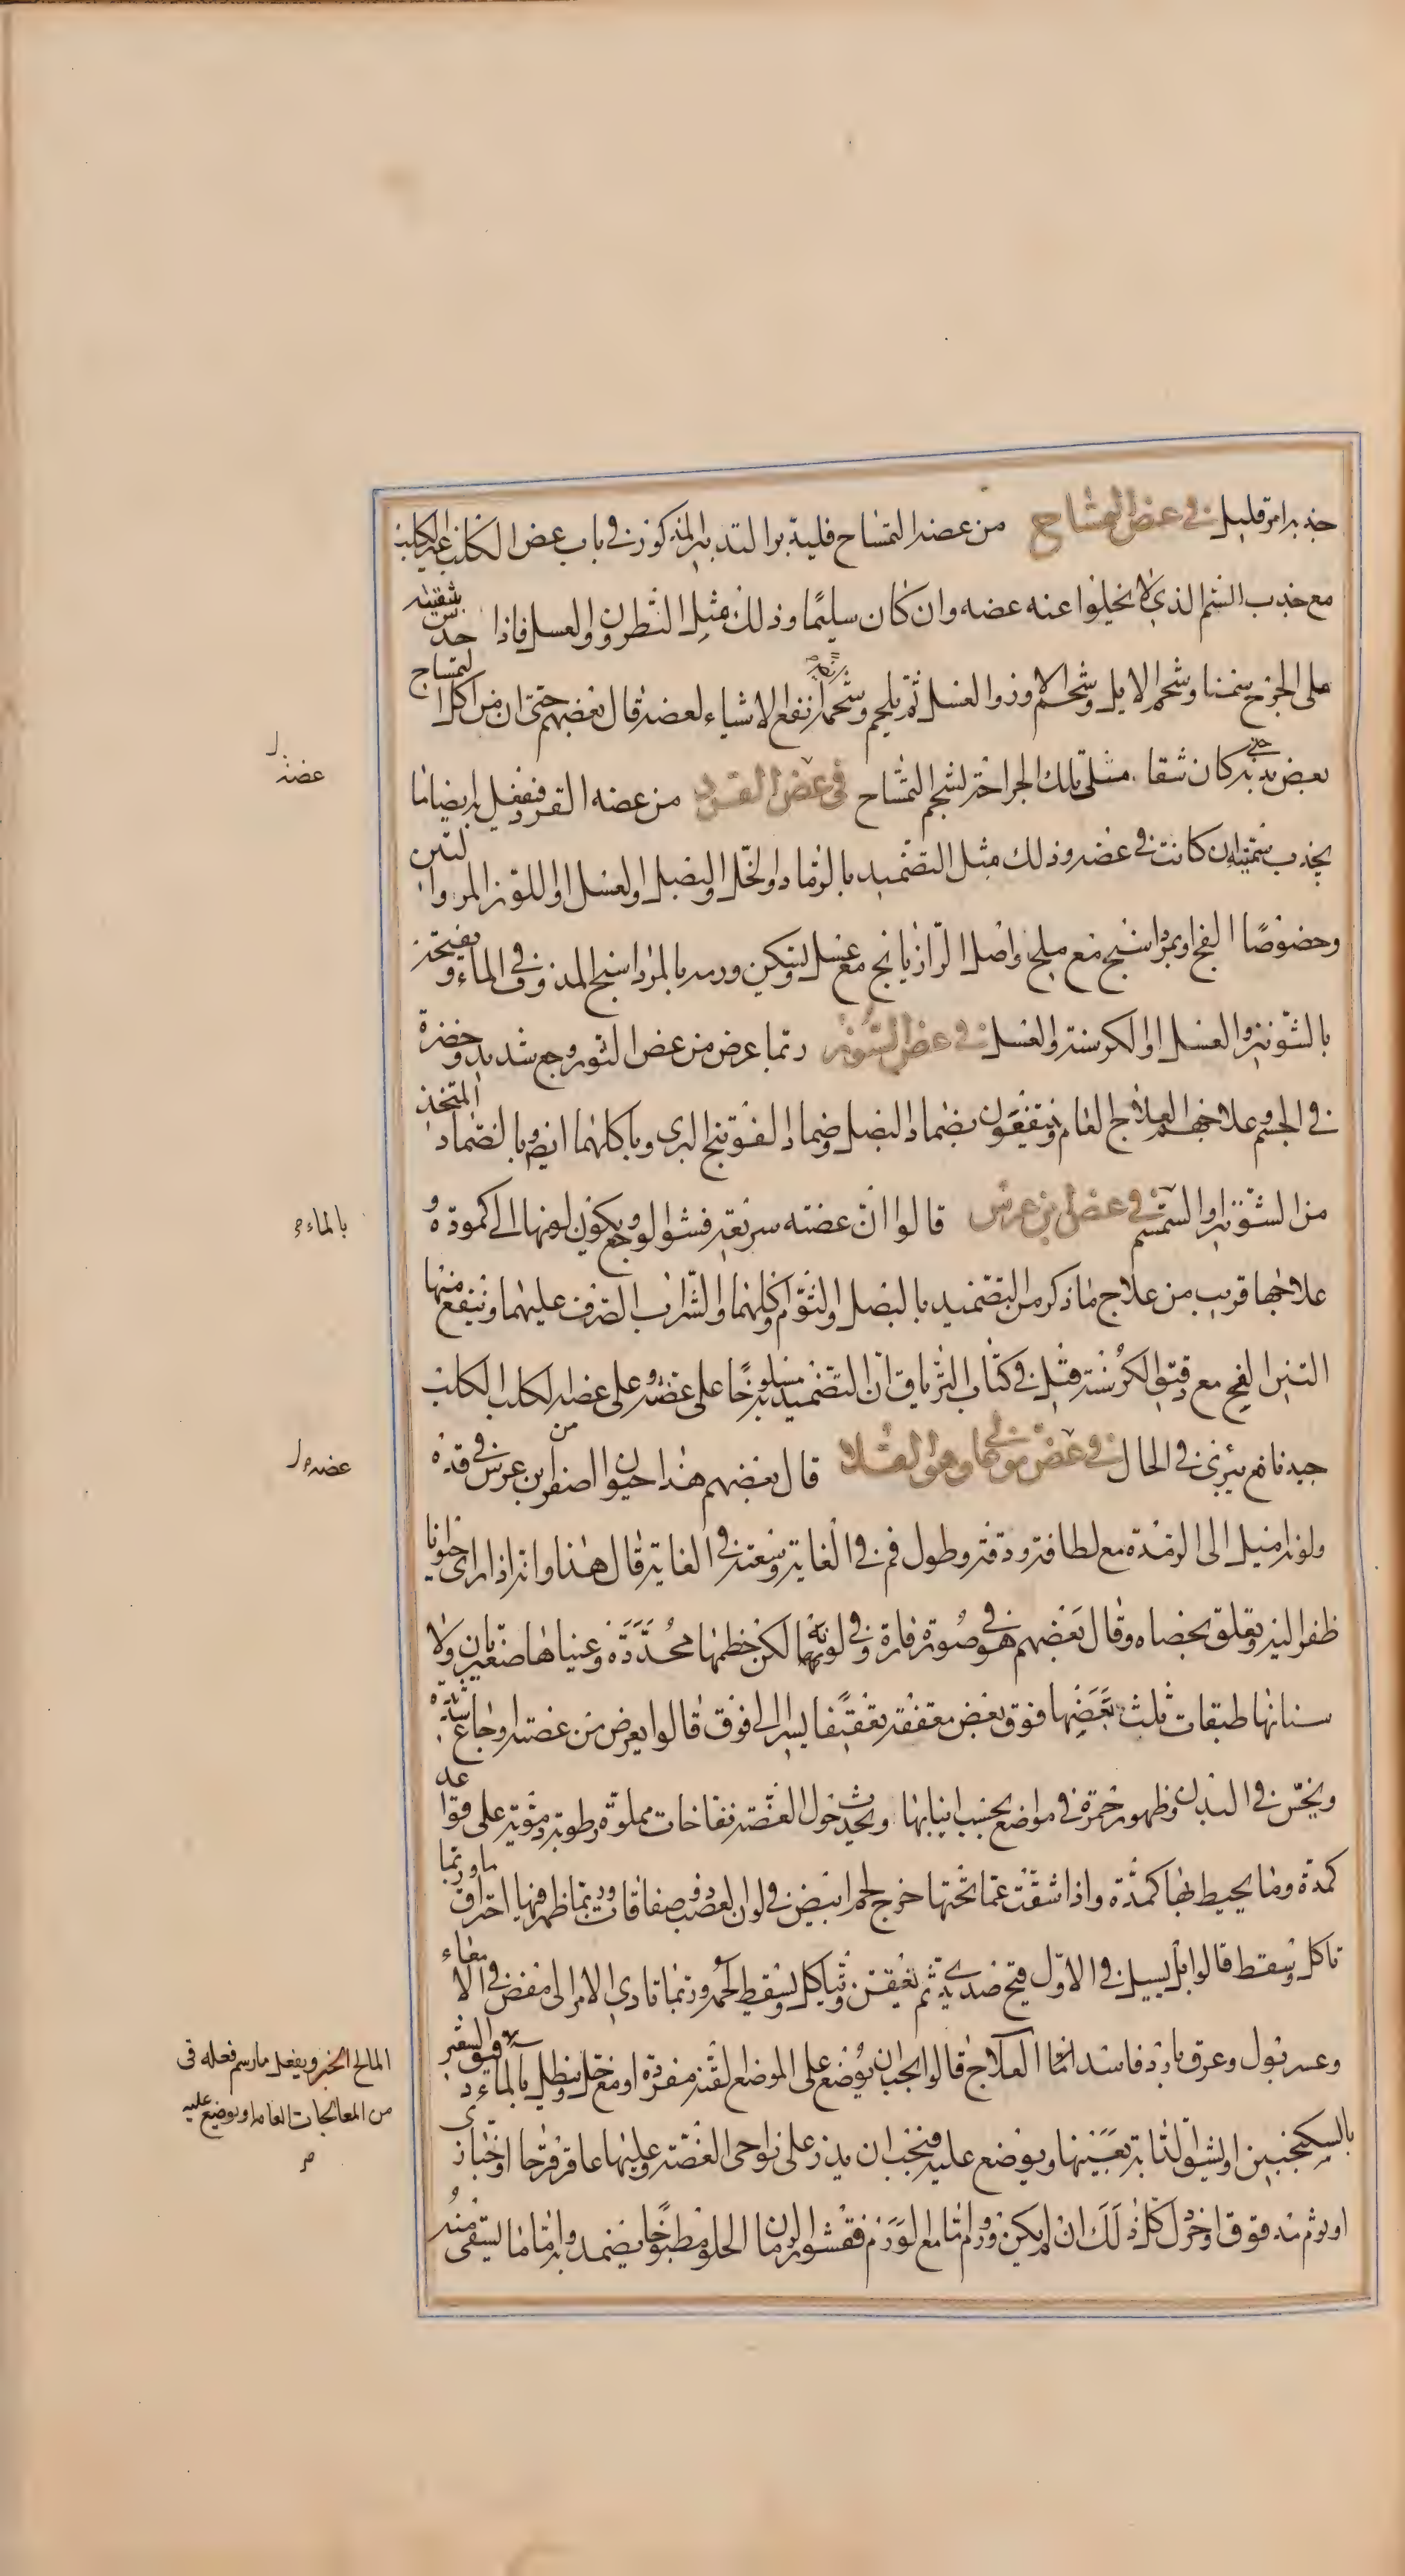 جذبا مرة قليل في عض التمساح من عضه التمساح فليدبر التدبير المذكور في باب عض الكلب غير الكلب
مع جذب السم الذي لا يخلوا عنه عضه وان كان سليمًا وذلك مثل النطرون والعسل فاذا حدس بتنقيته
ملى الجرح سمنا وشحم الايل وشحم الاوز والعسل ثم يلحم وشحمه انفع الاشياء لعضه قال بعضهم حتى ان من اكل التمساح
بعض بدنه كان شفا مثلي تلك الجراحة لشحم التمساح في عض القرد من عضه القرد فيفعل به ايضا ما
يجذب سميته ان كانت في عضه وذلك مثل التضميد بالرماد والخل والبصل والعسل او اللوز المر والتين
وخصوصًا الفج او بمرداسنج مع ملح واصل الرازيانج مع عسل ويسكن ورمه بالمرداسنج المدوف في الماء ويفتحه
بالشونيز والعسل او الكرسنة والعسل في عض السنور ربما عرض من عض السنور وجع شديد وخضرة
في الجسم وعلاجهم العلاج العام وينتفعون بضماد البصل وضماد الفوتنج البري وباكلهما ايضا وبالضماد المتخذ
من الشونيز او السمسم في عض ابن عرس قالوا ان عضته سريعة فشو الوجع ويكون لونها الى كمودة و
علاجها قريب من علاج ما ذكر من التضميد بالبصل والثوم واكلهما والشراب الصرف عليهما وينفع منها
التين الفج مع دقيق الكرسنة قيل في كتاب الترياق ان التضميد به مسلوخًا على عضته وعلى عضه الكلب الكلب
جيد نافع يبرئ في الحال في عض موغالي وهو العشلا قال بعضهم هذا حيوان اصفر من ابن عرس في قده
ولونه اميل الى الرمدة مع لطافة ودقة وطول فم في الغاية وسعته في الغاية قال هذا وانه اذا راى حيوانا
ظفر اليه وتعلق بخصاه وقال بعضهم هو في صورة فارة وفي لونها لكن خطمها محددة وعيناها صغيرتان ولا
سنانها طبقات ثلث بعضها فوق بعض معقفة تعقيفا يسيرا الى فوق قالوا يعرض من عضته اوجاع شديدة
ونخس في البدن وظهور حمرة في مواضع بحسب انيابها ويحدث حول العضة نفاخات مملوة رطوبة دموية على قواعد
كمدة وما يحيط بها كمدة واذا شقت عما تحتها خرج لحم ابيض في لون العصب ذو صفاقات وربما ظهر فيها احتراق ما وربما
تاكل وسقط قالوا بل يسيل في الاول قيح صديدي ثم يعفن ويتاكل ويسقط اللحم وربما تادى الامر الى مغص في الامعاء
وعسر بول وعرق بارد فاسد اما العلاج قالوا يجب ان يوضع على الموضع لقنه مفردة او مع خل وينطل بالماء دقيق الشعير
بالسكنجبين او يشق الدابة بعينها ويوضع عليه فيجب ان يذر على نواحي العضة وعليها عاقرقرحا او خباز ى
او ثوم مدقوق او خردل كل ذلك ان لم يكن ورم واما مع الورم فقشور الرمان الحلو مطبوخا يضمد به واما ما يستقى منه
عضه ل
بالماء
عضه ل
المالح الخبز ويفعل ما رسم فعله في
من المعالجات العامه ويوضع عليه